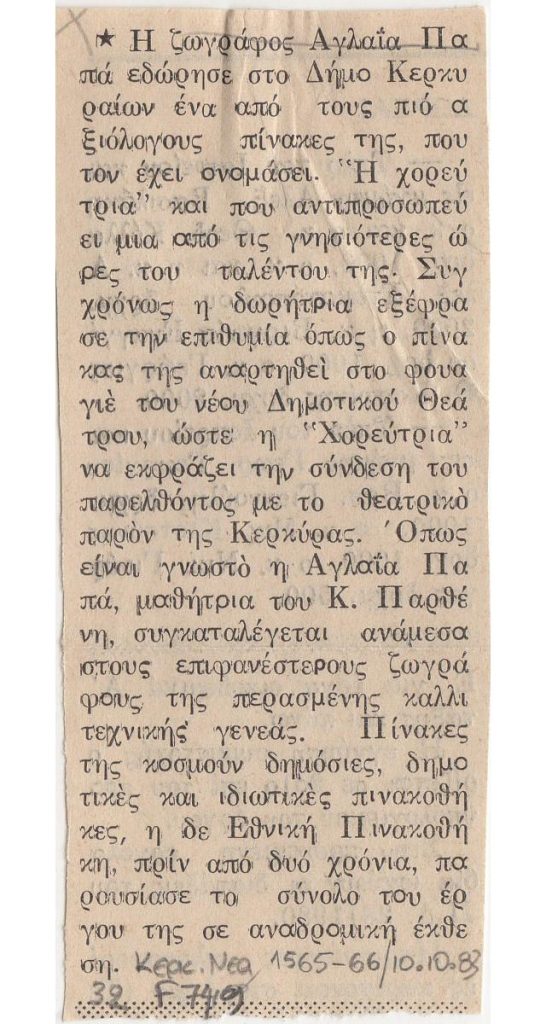 ★ Η ζωγράφος Αγλαΐα Πα
πά εδώρησε στο Δήμο Κερκυ
ραίων ένα από τους πιό α
ξιόλογους πίνακες της, που
τον έχει ονομάσει. "Η χορεύ
τρια" και που αντιπροσωπεύ
ει μια από τις γνησιότερες ώ
ρες του ταλέντου της. Συγ
χρόνως η δωρήτρια εξέφρα
σε την επιθυμία όπως ο πίνα
κας της αναρτηθεὶ στο φουα
γιὲ του νέου Δημοτικού Θεά
τρου, ώστε η "Χορεύτρια"
να εκφράζει την σύνδεση του
παρελθόντος με το θεατρικὸ
παρὸν της Κερκύρας. Όπως
είναι γνωστὸ η Αγλαΐα Πα
πά, μαθήτρια του Κ. Παρθέ
νη, συγκαταλέγεται ανάμεσα
στους επιφανέστερους ζωγρά
φους της περασμένης καλλι
τεχνικής γενεάς. Πίνακες
της κοσμούν δημόσιες, δημο
τικὲς και ιδιωτικὲς πινακοθή
κες, η δε Εθνική Πινακοθή
κη, πρίν από δυό χρόνια, πα
ρουσίασε το σύνολο του έρ
γου της σε αναδρομική έκθε
ση. Κερκ. Νεα 1565-66/10.10.83
32 F